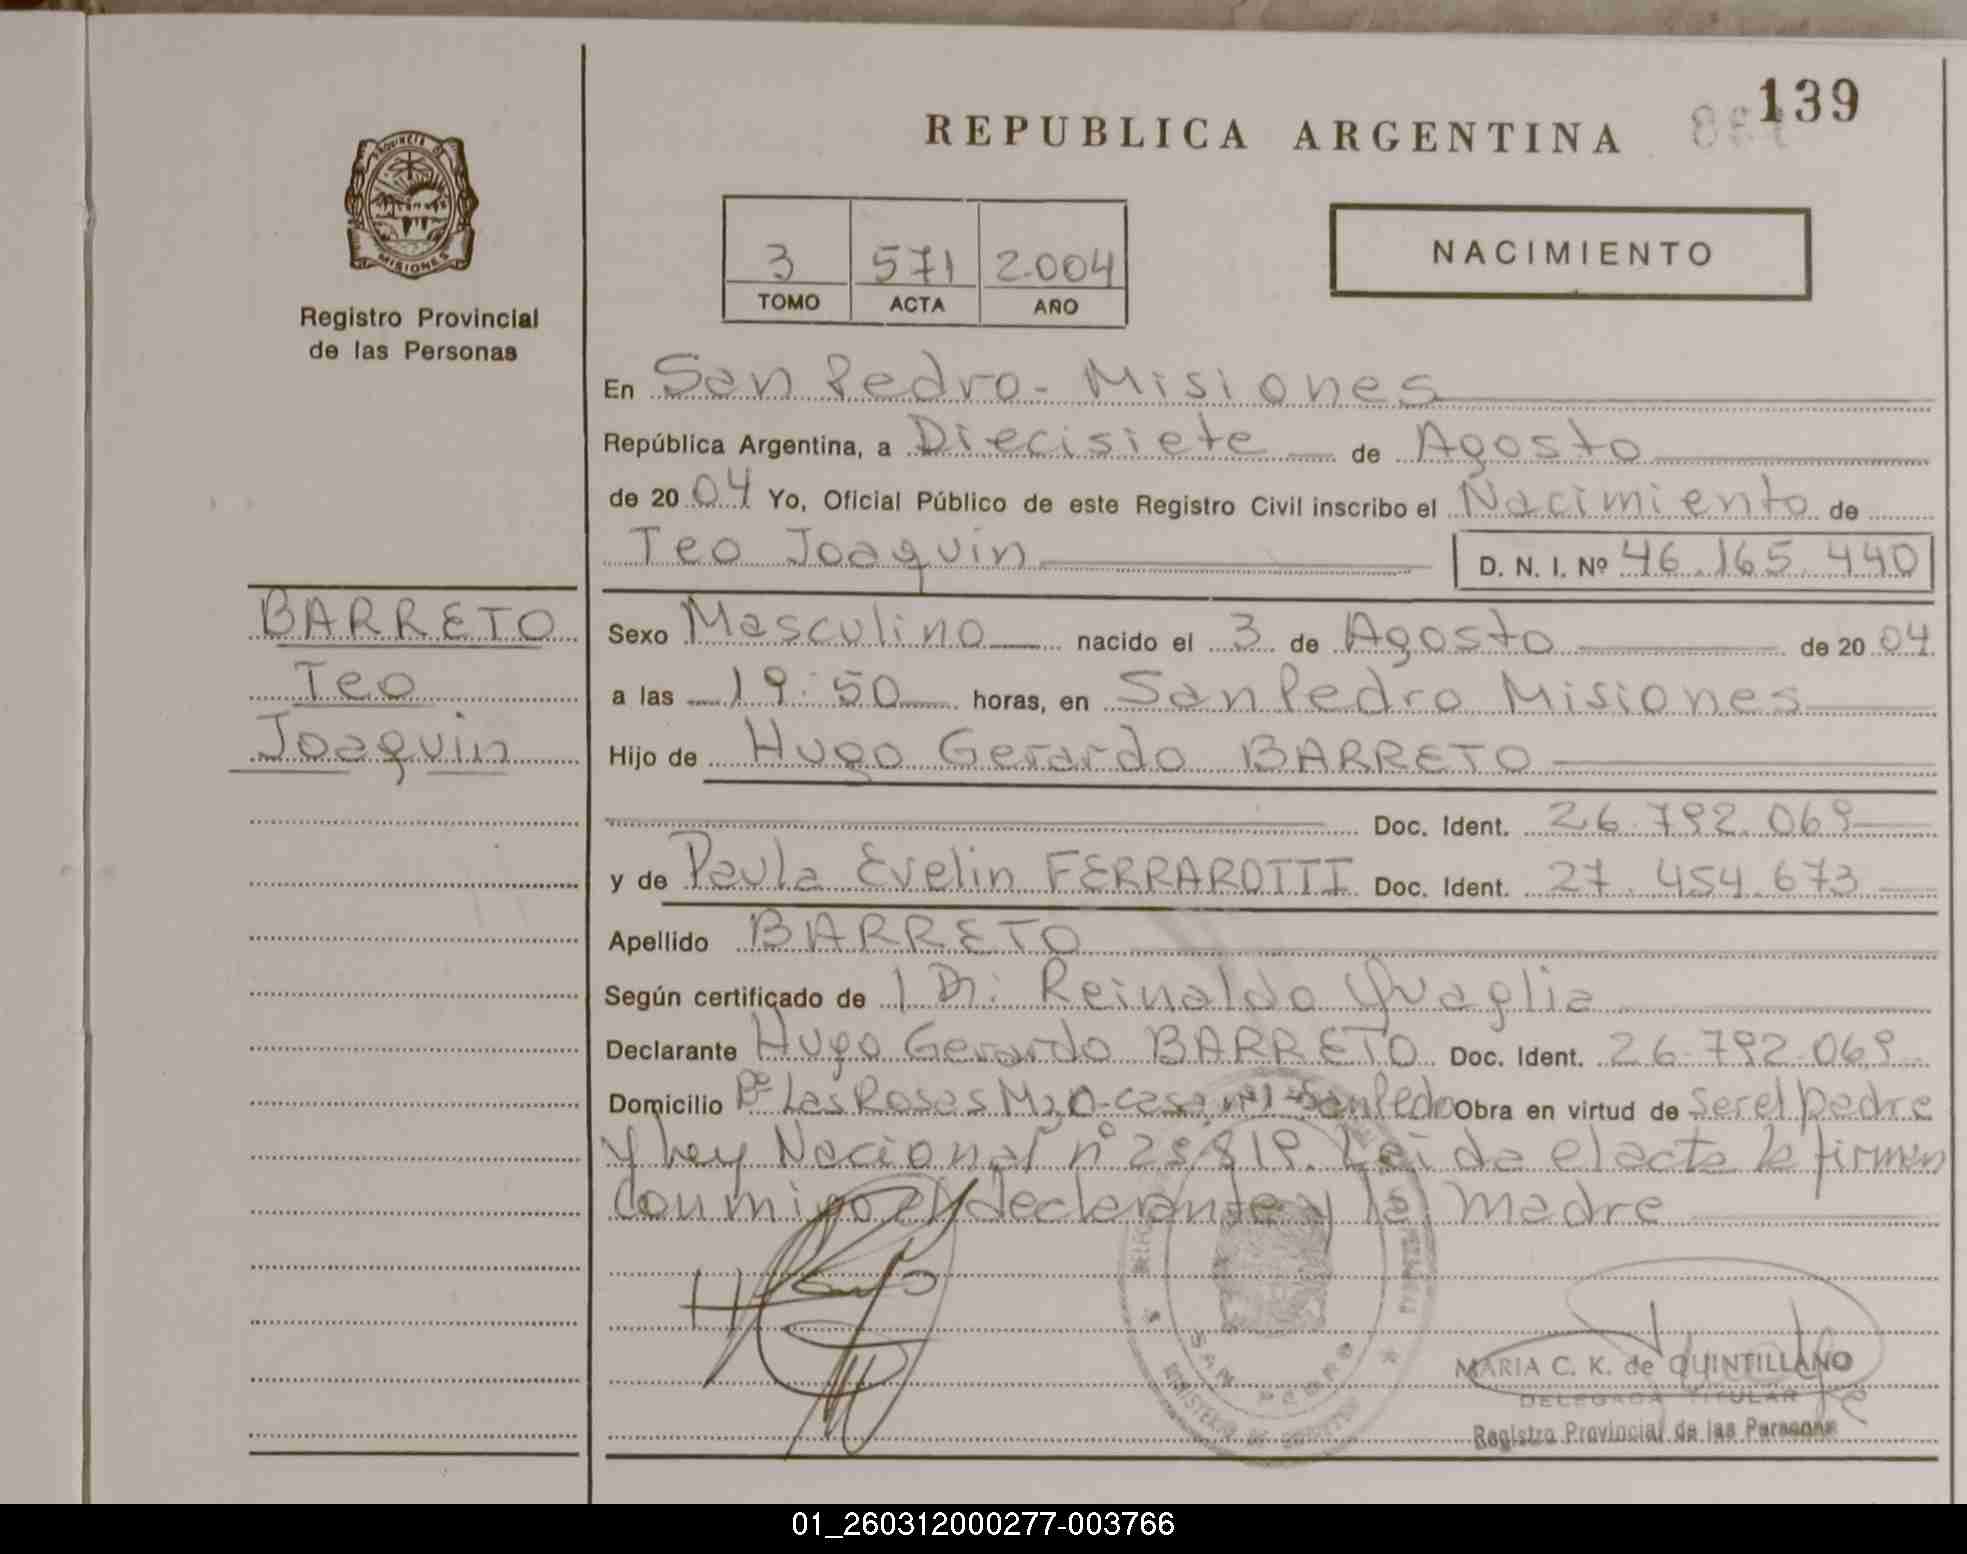 139
REPUBLICA ARGENTINA
PROVINCIA DE
MISIONES
Registro Provincial
de las Personas
3 571 2.004
TOMO ACTA AÑO
NACIMIENTO
En San Pedro - Misiones
República Argentina, a Diecisiete de Agosto
de 20 04 Yo, Oficial Público de este Registro Civil inscribo el Nacimiento de
Teo Joaquin D. N. I. Nº 46.165.440
BARRETO
Teo
Joaquin
Sexo Masculino nacido el 3 de Agosto de 20 04
a las 19:50 horas, en San Pedro Misiones
Hijo de Hugo Gerardo BARRETO
Doc. Ident. 26.792.069
y de Paula Evelin FERRAROTTI Doc. Ident. 27.454.673
Apellido BARRETO
Según certificado de Dr: Reinaldo Quaglia
Declarante Hugo Gerardo BARRETO Doc. Ident. 26.792.069
Domicilio Bº Las Rosas San Pedro Obra en virtud de ser el padre
y Ley Nacional nº Leida el acta la firman
conmigo el declarante y la madre
SAN PEDRO
MARIA C. K. de QUINTILLANO
DELEGADA TITULAR
Registro Provincial de las Personas
01_260312000277-003766